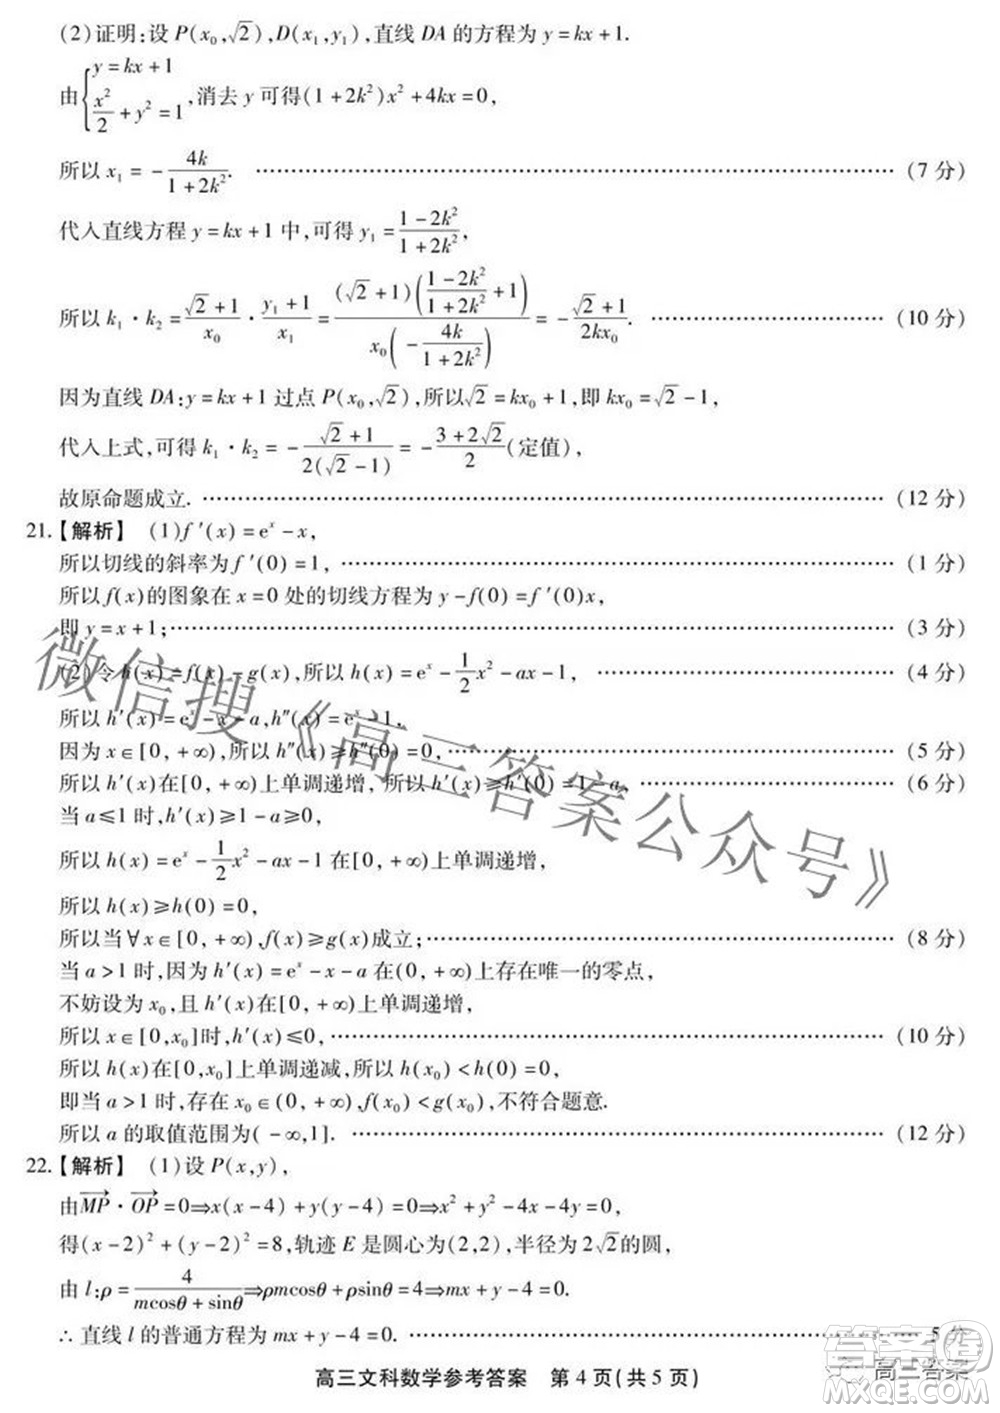 (2)证明:设 P(x₀,√2),D(x₁,y₁),直线 DA 的方程为 y=kx+1.
由{y=kx+1, x²/2+y²=1,消去 y 可得(1+2k²)x²+4kx=0,
所以 x₁=-4k/(1+2k²). ……(7 分)
代入直线方程 y=kx+1 中,可得 y₁=(1-2k²)/(1+2k²),
所以 k₁·k₂=(√2+1)/x₀·(y₁+1)/x₁=(√2+1)((1-2k²)/(1+2k²)+1)/(x₀(-4k/(1+2k²)))=-(√2+1)/(2kx₀). ……(10 分)
因为直线 DA:y=kx+1 过点 P(x₀,√2),所以√2=kx₀+1,即 kx₀=√2-1,
代入上式,可得 k₁·k₂=-(√2+1)/(2(√2-1))=-(3+2√2)/2(定值),
故原命题成立. ……(12 分)
21.【解析】(1)f′(x)=eˣ-x,
所以切线的斜率为 f′(0)=1, ……(1 分)
所以 f(x)的图象在 x=0 处的切线方程为 y-f(0)=f′(0)x,
即 y=x+1; ……(3 分)
(2)令 h(x)=f(x)-g(x),所以 h(x)=eˣ-1/2x²-ax-1, ……(4 分)
所以 h′(x)=eˣ-x-a,h″(x)=eˣ-1,
因为 x∈[0,+∞),所以 h″(x)≥h″(0)=0, ……(5 分)
所以 h′(x)在[0,+∞)上单调递增,所以 h′(x)≥h′(0)=1-a, ……(6 分)
当 a≤1 时,h′(x)≥1-a≥0,
所以 h(x)=eˣ-1/2x²-ax-1 在[0,+∞)上单调递增,
所以 h(x)≥h(0)=0,
所以当∀x∈[0,+∞),f(x)≥g(x)成立; ……(8 分)
当 a>1 时,因为 h′(x)=eˣ-x-a 在[0,+∞)上存在唯一的零点,
不妨设为 x₀,且 h′(x)在[0,+∞)上单调递增,
所以 x∈[0,x₀]时,h′(x)≤0, ……(10 分)
所以 h(x)在[0,x₀]上单调递减,所以 h(x₀)<h(0)=0,
即当 a>1 时,存在 x₀∈(0,+∞),f(x₀)<g(x₀),不符合题意.
所以 a 的取值范围为(-∞,1]. ……(12 分)
22.【解析】(1)设 P(x,y),
由MP·OP=0⇒x(x-4)+y(y-4)=0⇒x²+y²-4x-4y=0,
得(x-2)²+(y-2)²=8,轨迹 E 是圆心为(2,2),半径为 2√2的圆,
由 l:ρ=4/(mcosθ+sinθ)⇒ρmcosθ+ρsinθ=4⇒mx+y-4=0.
∴直线 l 的普通方程为 mx+y-4=0. ……5 分
高三文科数学参考答案 第 4 页(共 5 页)
微信搜《高三答案公众号》
高三答案
答案圈
MXQE.COM